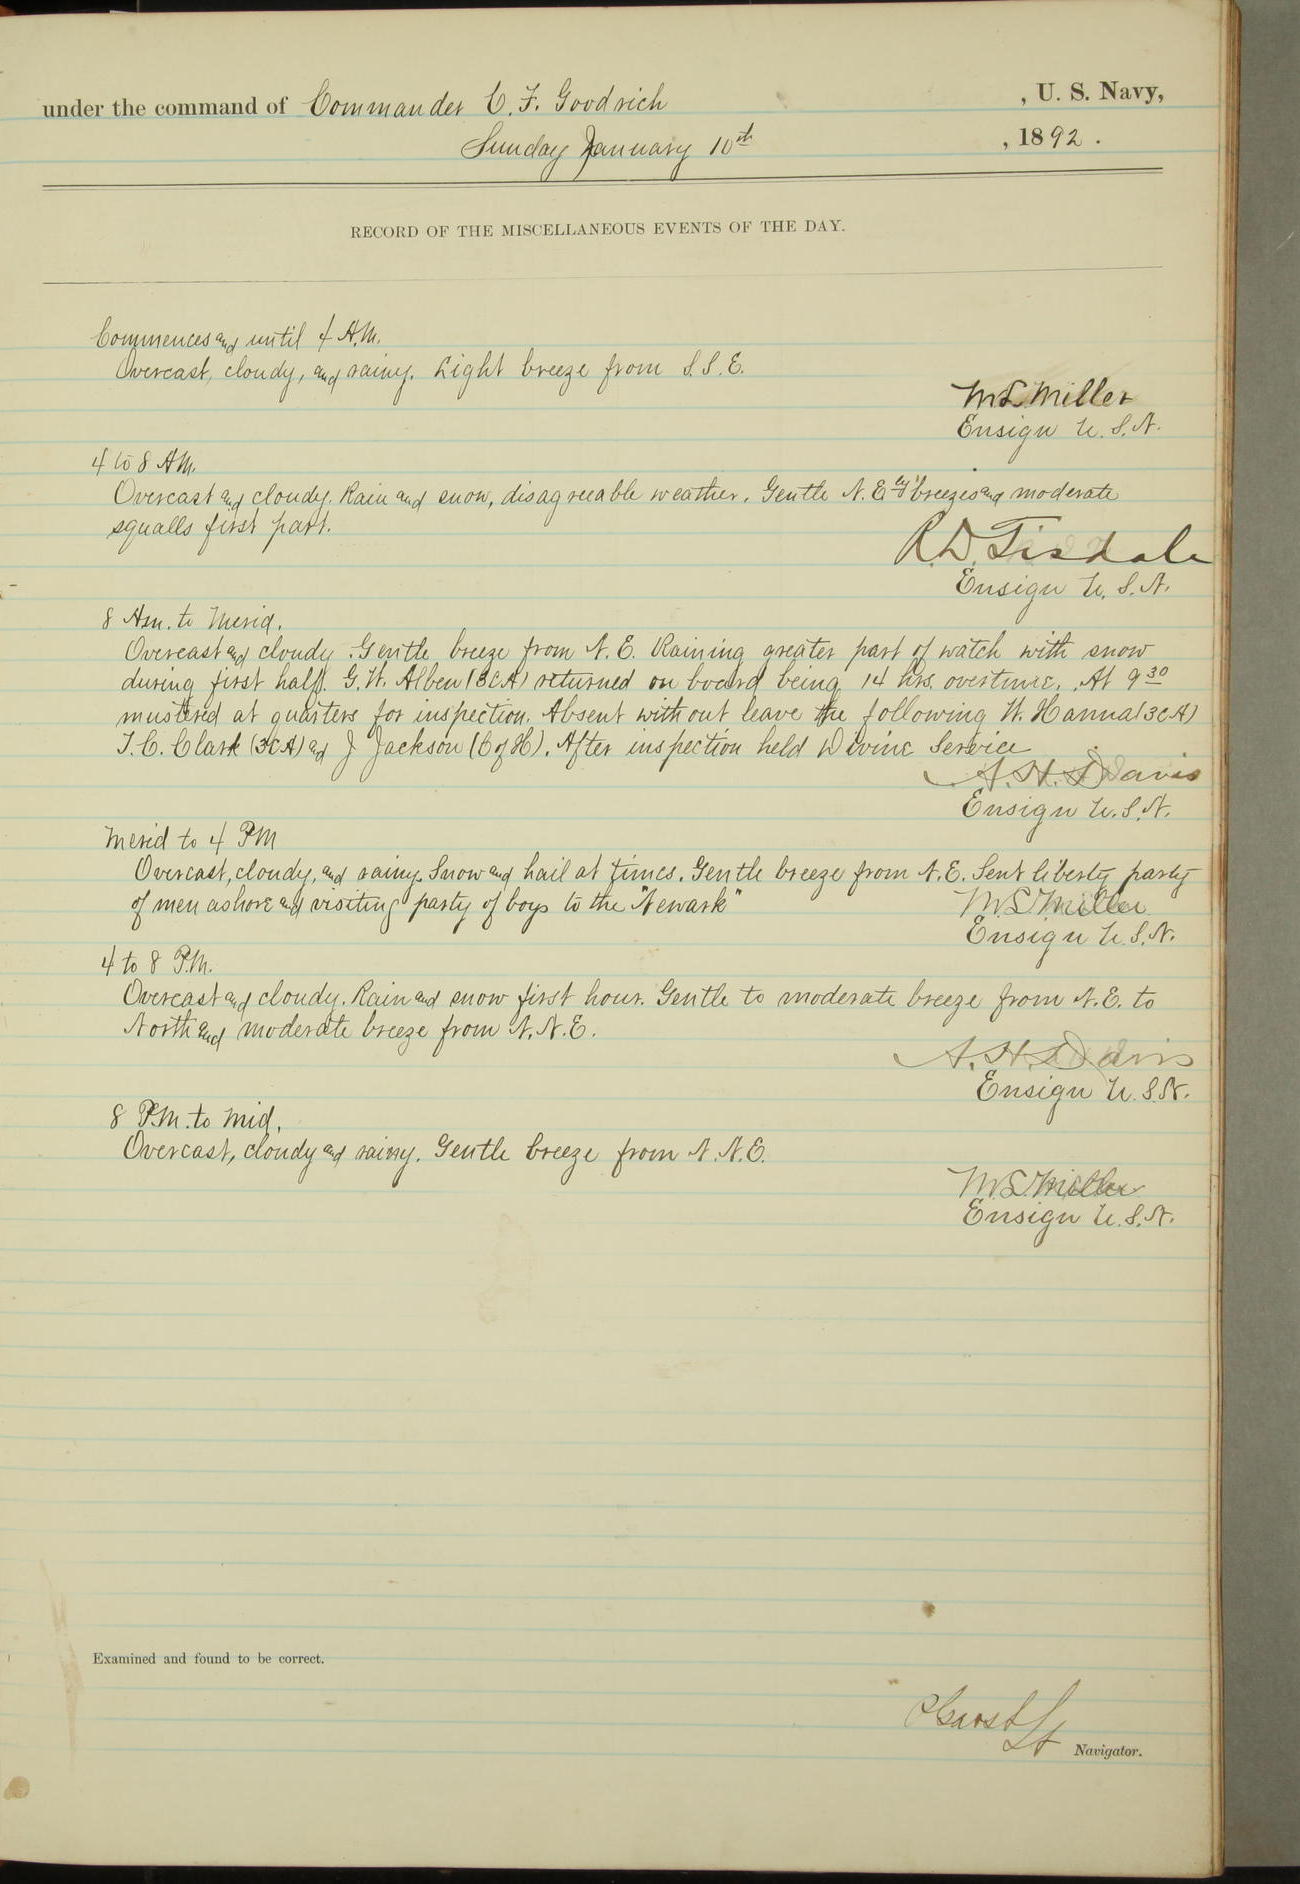 under the command of Commander C. F. Goodrich , U. S. Navy,
Sunday January 10th , 1892.
RECORD OF THE MISCELLANEOUS EVENTS OF THE DAY.
Commences and until 4 A.M.
Overcast, cloudy, and rainy. Light breeze from S.S.E.
M L Miller
Ensign U.S.N.
4 to 8 A.M.
Overcast and cloudy. Rain and snow, disagreeable weather. Gentle N.E'ly breezes and moderate
squalls first part.
R.D. Tisdale
Ensign U.S.N.
8 Am. to Merid.
Overcast and cloudy. Gentle breeze from N.E. Raining greater part of watch with snow
during first half. G. W. Alben (3CA) returned on board being 14 hrs. overtime. At 9 30
mustered at quarters for inspection. Absent without leave the following W. Hanna (3CA)
T. C. Clark (3CA) and J Jackson (C of H). After inspection held Divine Service
A. H. Davis
Ensign U.S.N.
Merid to 4 PM
Overcast, cloudy, and rainy. Snow and hail at times. Gentle breeze from N.E. Sent liberty party
of men ashore and visiting party of boys to the "Newark"
M L Miller
Ensign U.S.N.
4 to 8 P.M.
Overcast and cloudy. Rain and snow first hour. Gentle to moderate breeze from N.E. to
North and moderate breeze from N.N.E.
A. H. Davis
Ensign U.S.N.
8 P.M. to Mid.
Overcast, cloudy and rainy. Gentle breeze from N.N.E.
M L Miller
Ensign U.S.N.
Examined and found to be correct.
Navigator.